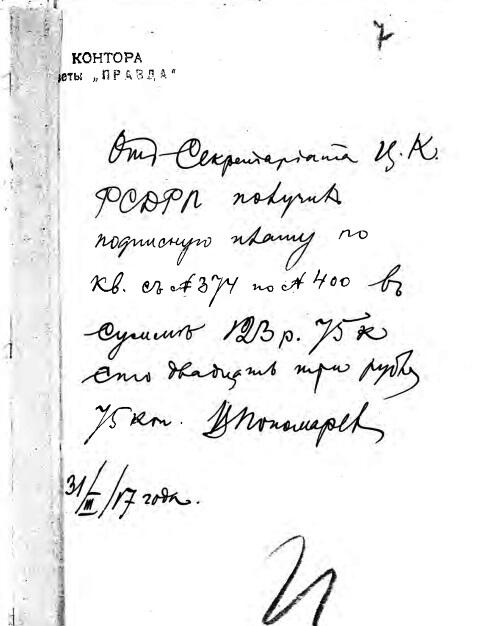 7
КОНТОРА
зеты „ПРАВДА“
Отъ Секретаріата Ц.К.
РСДРП получилъ
подписную плату по
кв. съ № 374 по № 400 въ
суммѣ 123 р. 75 к
сто двадцать три рубля
75 коп. Пономарев
31/III/17 года.